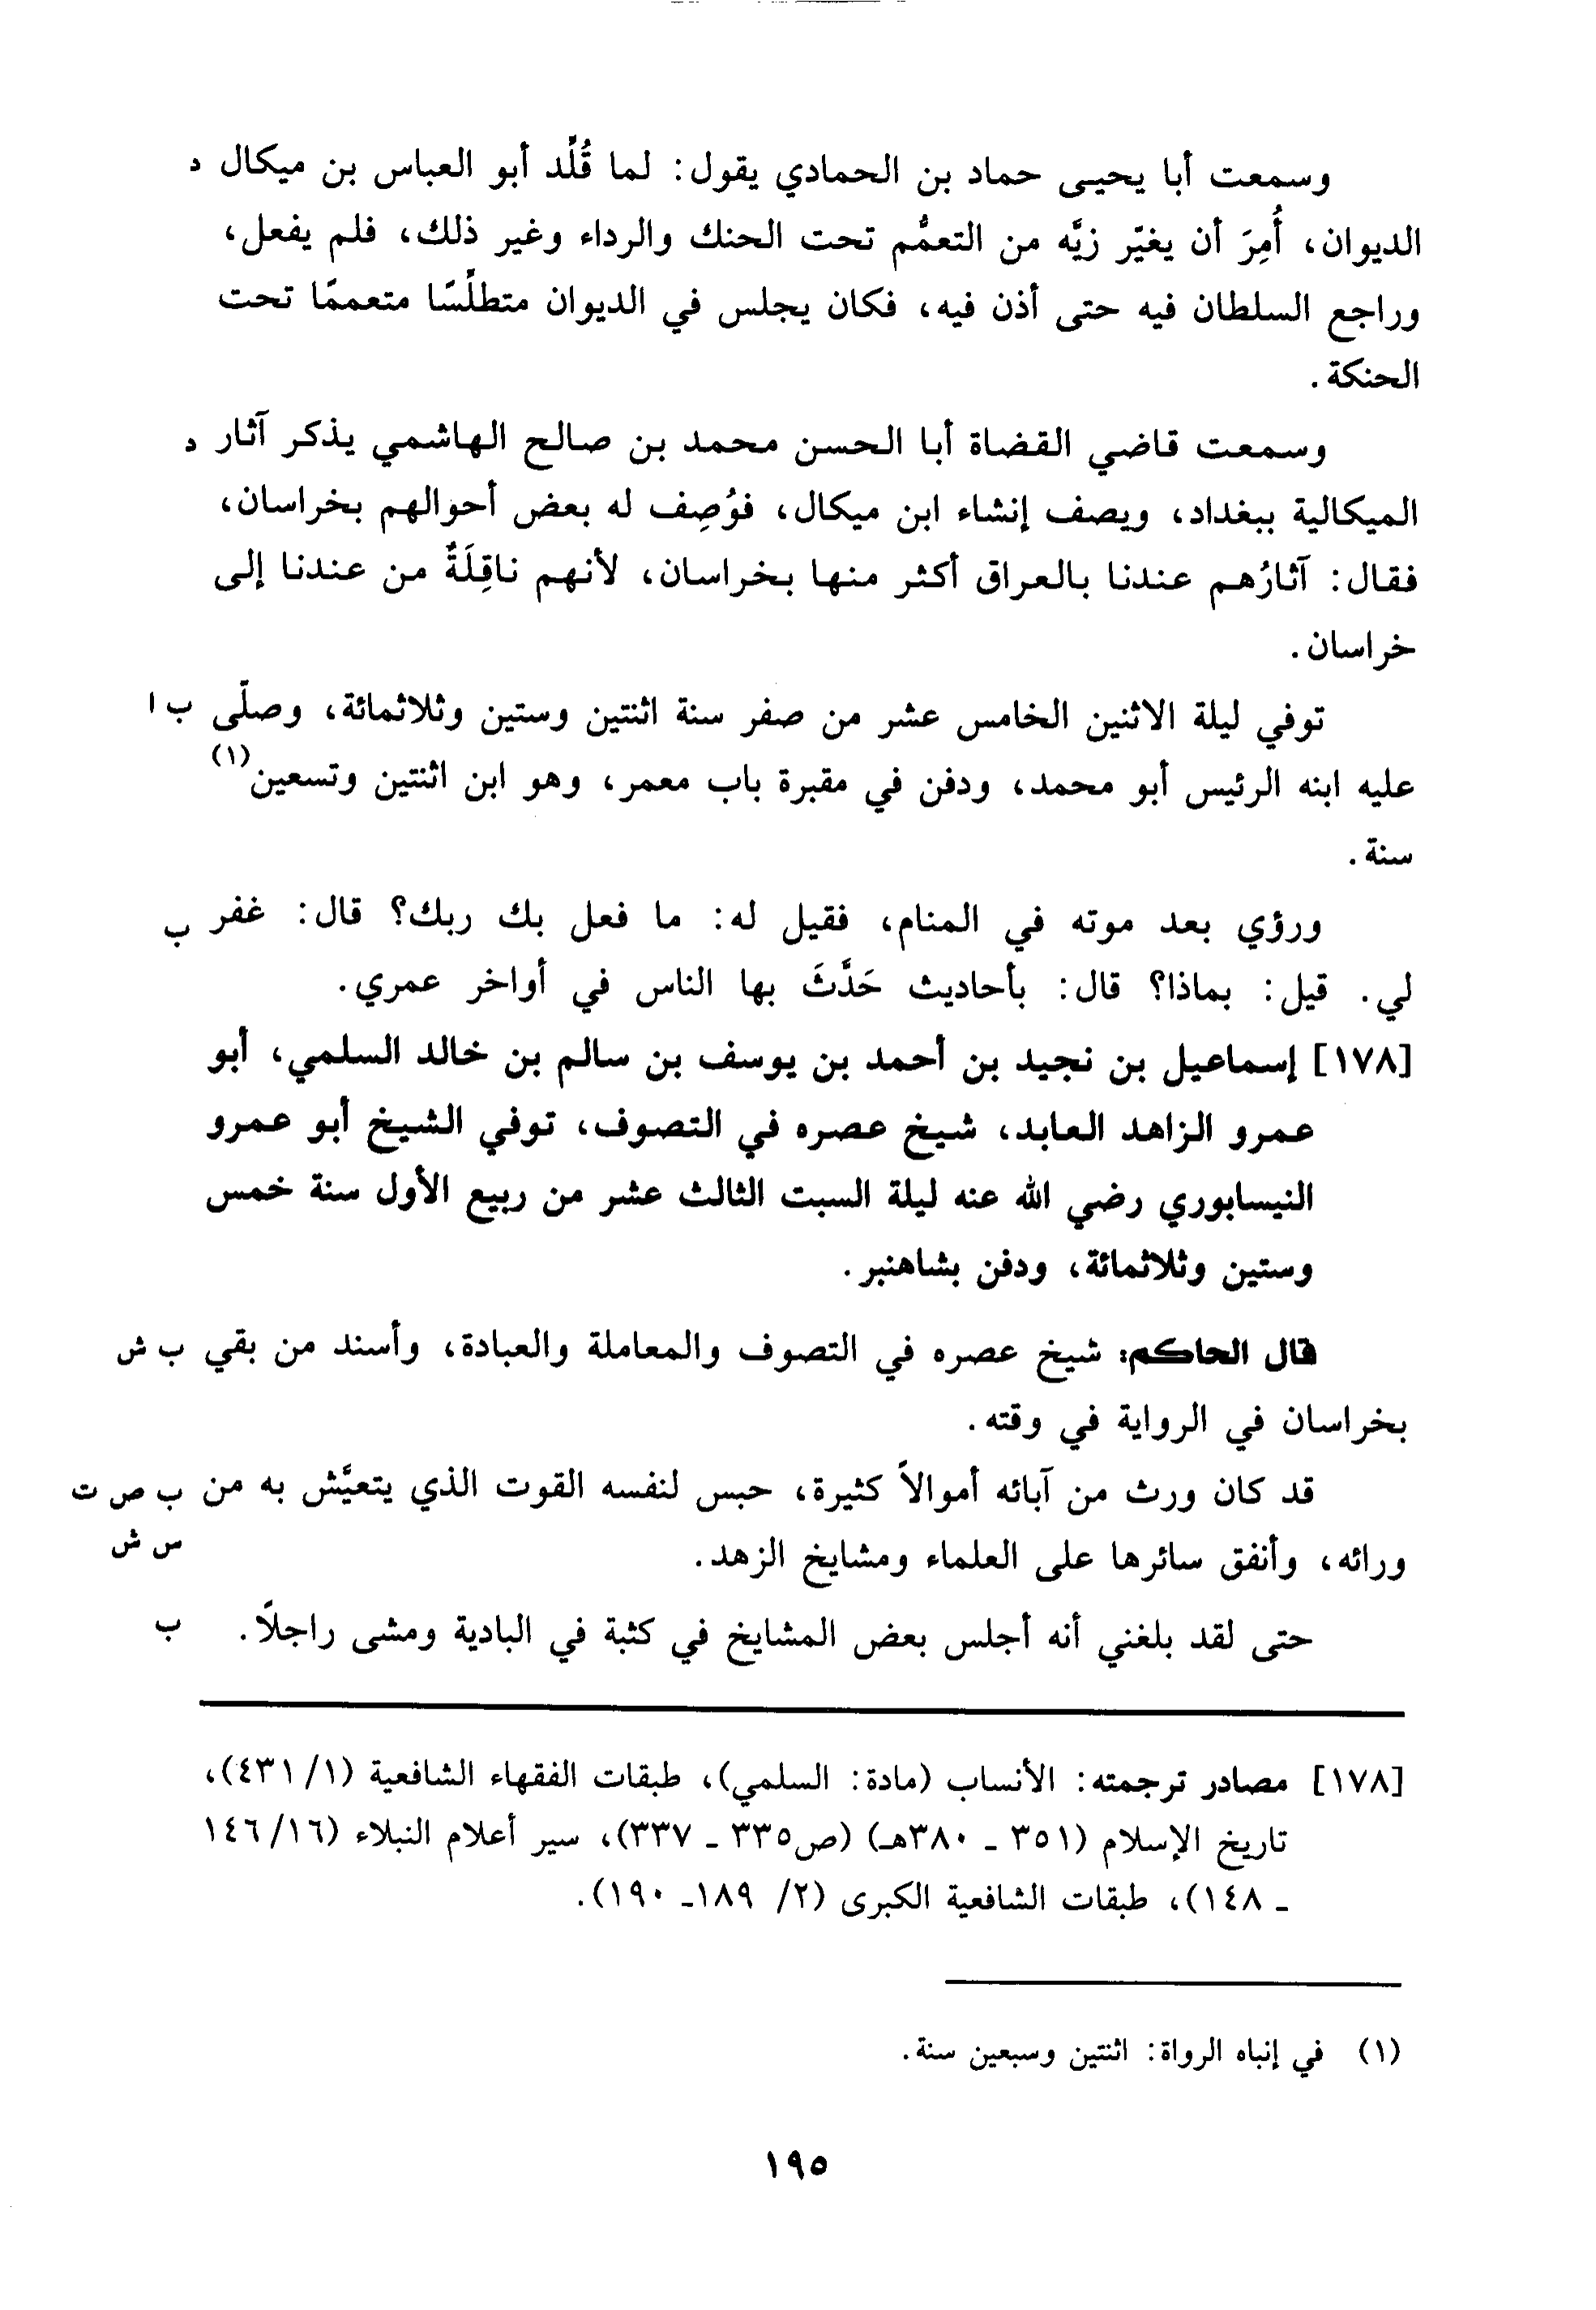 وسمعت أبا يحيى حماد بن الحمادي يقول: لما قُلِّد أبو العباس بن ميكال د
الديوان، أُمِرَ أن يغيّر زيَّه من التعمُّم تحت الحنك والرداء وغير ذلك، فلم يفعل،
وراجع السلطان فيه حتى أذن فيه، فكان يجلس في الديوان متطلِّسًا متعممًا تحت
الحنكة.
وسمعت قاضي القضاة أبا الحسن محمد بن صالح الهاشمي يذكر آثار د
الميكالية ببغداد، ويصف إنشاء ابن ميكال، فوُصِف له بعض أحوالهم بخراسان،
فقال: آثارُهم عندنا بالعراق أكثر منها بخراسان، لأنهم ناقِلَةٌ من عندنا إلى
خراسان.
توفي ليلة الاثنين الخامس عشر من صفر سنة اثنتين وستين وثلاثمائة، وصلّى ب ا
عليه ابنه الرئيس أبو محمد، ودفن في مقبرة باب معمر، وهو ابن اثنتين وتسعين(١)
سنة.
ورؤي بعد موته في المنام، فقيل له: ما فعل بك ربك؟ قال: غفر ب
لي. قيل: بماذا؟ قال: بأحاديث حَدَّثَ بها الناس في أواخر عمري.
[١٧٨] إسماعيل بن نجيد بن أحمد بن يوسف بن سالم بن خالد السلمي، أبو
عمرو الزاهد العابد، شيخ عصره في التصوف، توفي الشيخ أبو عمرو
النيسابوري رضي الله عنه ليلة السبت الثالث عشر من ربيع الأول سنة خمس
وستين وثلاثمائة، ودفن بشاهنبر.
قال الحاكم: شيخ عصره في التصوف والمعاملة والعبادة، وأسند من بقي ب ش
بخراسان في الرواية في وقته.
قد كان ورث من آبائه أموالاً كثيرة، حبس لنفسه القوت الذي يتعيَّش به من ب ص ت
ورائه، وأنفق سائرها على العلماء ومشايخ الزهد. س ش
حتى لقد بلغني أنه أجلس بعض المشايخ في كثبة في البادية ومشى راجلاً. ب
[١٧٨] مصادر ترجمته: الأنساب (مادة: السلمي)، طبقات الفقهاء الشافعية (١/ ٤٣١)،
تاريخ الإسلام (٣٥١ ـ ٣٨٠هـ) (ص٣٣٥ ـ ٣٣٧)، سير أعلام النبلاء (١٦/ ١٤٦
ـ ١٤٨)، طبقات الشافعية الكبرى (٢/ ١٨٩ـ ١٩٠).
(١) في إنباه الرواة: اثنتين وسبعين سنة.
١٩٥